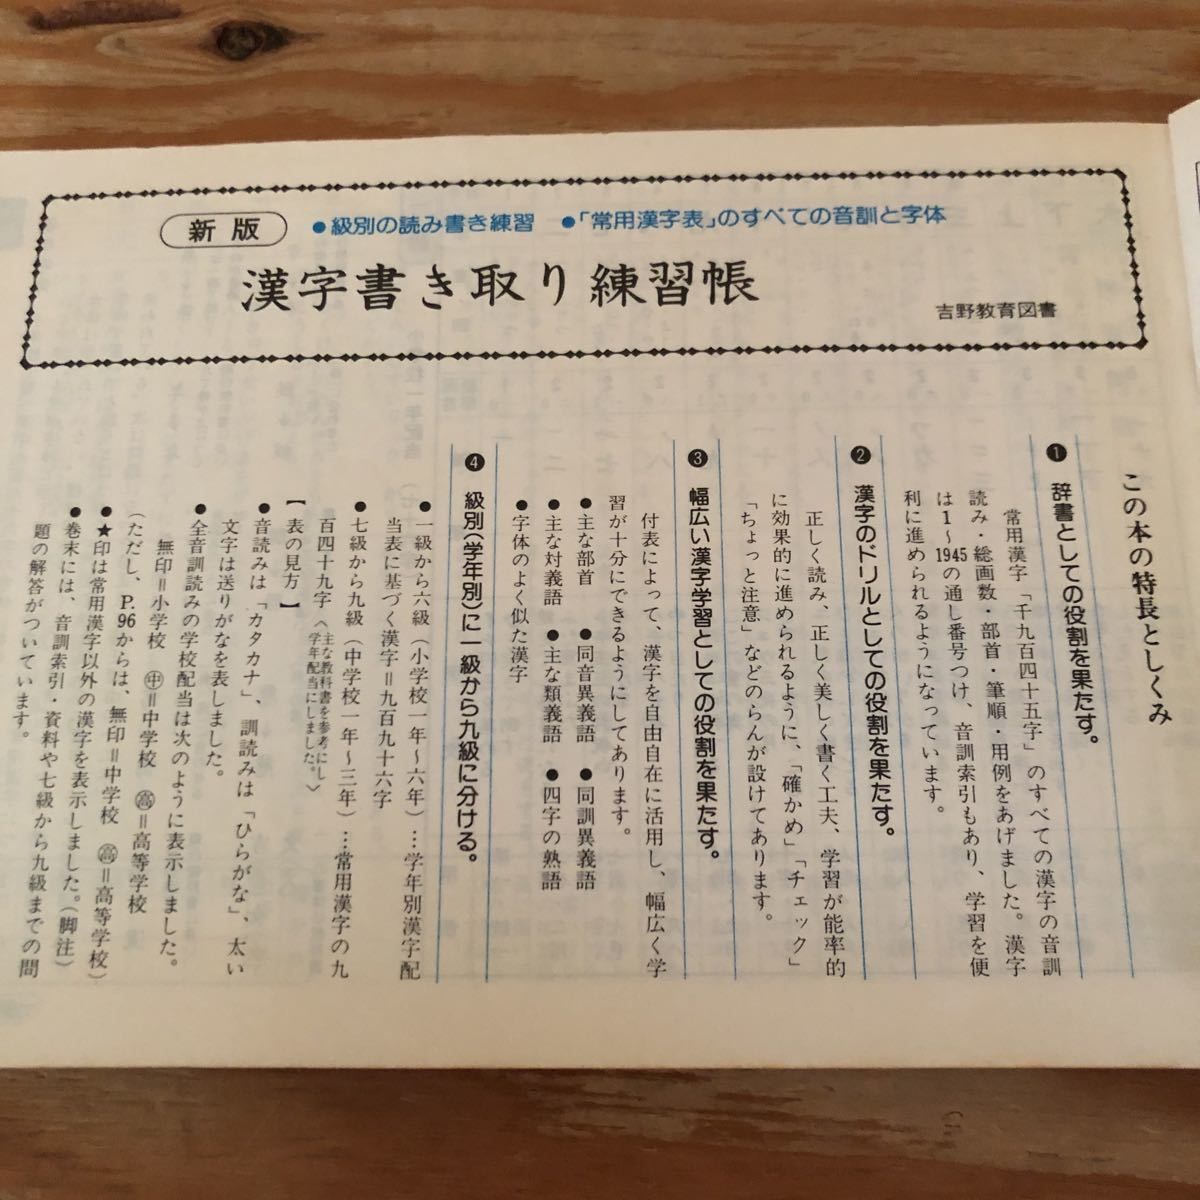 新版
●級別の読み書き練習 ●「常用漢字表」のすべての音訓と字体
漢字書き取り練習帳
吉野教育図書
この本の特長としくみ
❶ 辞書としての役割を果たす。
常用漢字「千九百四十五字」のすべての漢字の音訓
読み・総画数・部首・筆順・用例をあげました。漢字
は1～1945の通し番号つけ、音訓索引もあり、学習を便
利に進められるようになっています。
❷ 漢字のドリルとしての役割を果たす。
正しく読み、正しく美しく書く工夫、学習が能率的
に効果的に進められるように、「確かめ」「チェック」
「ちょっと注意」などのらんが設けてあります。
❸ 幅広い漢字学習としての役割を果たす。
付表によって、漢字を自由自在に活用し、幅広く学
習が十分にできるようにしてあります。
●主な部首 ●同音異義語 ●同訓異義語
●主な対義語 ●主な類義語 ●四字の熟語
●字体のよく似た漢字
❹ 級別(学年別)に一級から九級に分ける。
●一級から六級（小学校一年～六年）…学年別漢字配
当表に基づく漢字＝九百九十六字
●七級から九級（中学校一年～三年）…常用漢字の九
百四十九字〈主な教科書を参考にし
学年配当にしました。〉
【表の見方】
●音読みは「カタカナ」、訓読みは「ひらがな」、太い
文字は送りがなを表しました。
●全音訓読みの学校配当は次のように表示しました。
無印＝小学校 ㊥＝中学校 ㊢＝高等学校
(ただし、P.96からは、無印＝中学校 ㊢＝高等学校)
●★印は常用漢字以外の漢字を表示しました。(脚注)
●巻末には、音訓索引・資料や七級から九級までの問
題の解答がついています。